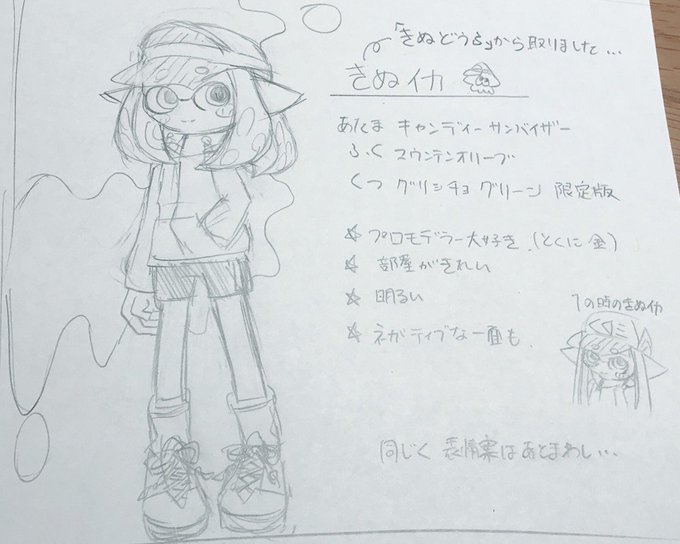 「きぬどうふ」から取りました...
きぬイカ
あたま キャンディーサンバイザー
ふく マウンテンオリーブ
くつ グリッチョ グリーン 限定版
☆ プロモデラー大好き (とくに 金)
☆ 部屋がきれい
☆ 明るい
☆ ネガティブな一面も
1の時のきぬイカ
同じく 表情案はあとまわし...